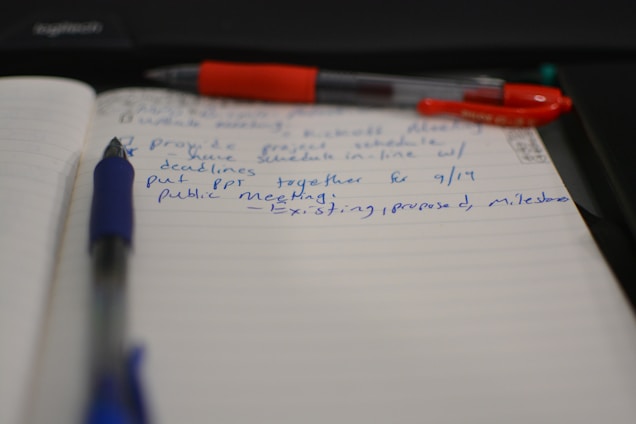 logitech
update meeting - kickoff meeting
provide project schedule
- have schedule in-line w/
deadlines
put PPT together for 9/19
public meeting:
- Existing, proposed, milestone